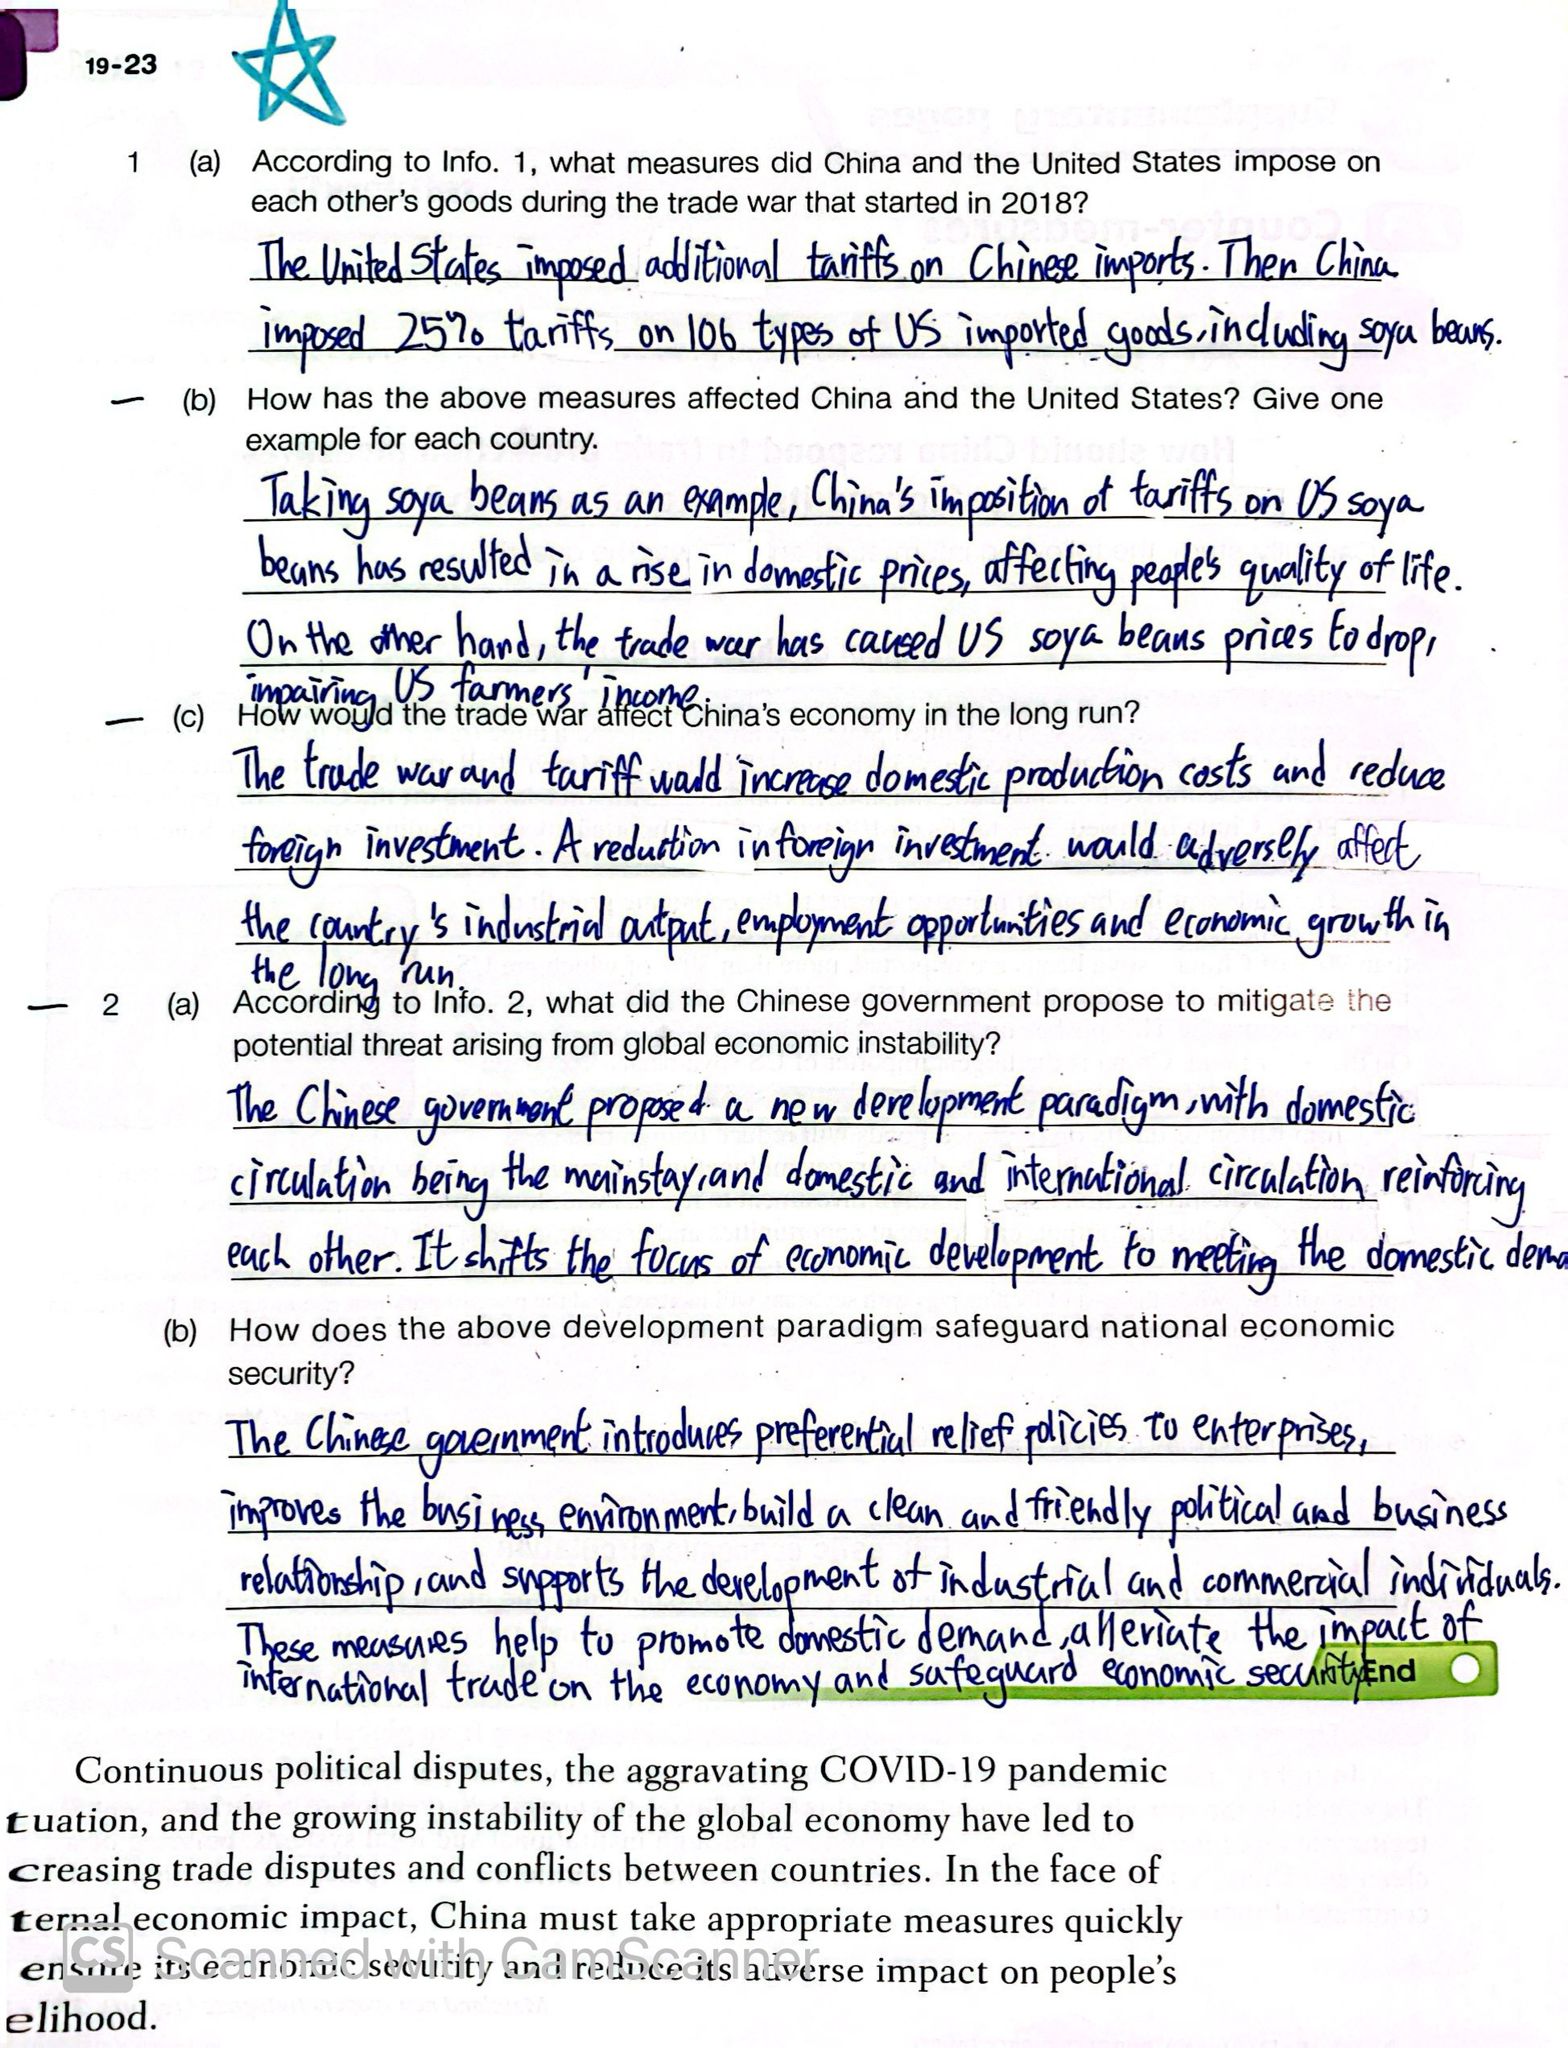 19-23
1 (a) According to Info. 1, what measures did China and the United States impose on
each other's goods during the trade war that started in 2018?
The United States imposed additional tariffs on Chinese imports. Then China
imposed 25% tariffs on 106 types of US imported goods, including soya beans.
(b) How has the above measures affected China and the United States? Give one
example for each country.
Taking soya beans as an example, China's imposition of tariffs on US soya
beans has resulted in a rise in domestic prices, affecting people's quality of life.
On the other hand, the trade war has caused US soya beans prices to drop,
impairing US farmers' income.
(c) How would the trade war affect China's economy in the long run?
The trade war and tariff would increase domestic production costs and reduce
foreign investment. A reduction in foreign investment would adversely affect
the country's industrial output, employment opportunities and economic growth in
the long run.
2 (a) According to Info. 2, what did the Chinese government propose to mitigate the
potential threat arising from global economic instability?
The Chinese government proposed a new development paradigm, with domestic
circulation being the mainstay, and domestic and international circulation reinforcing
each other. It shifts the focus of economic development to meeting the domestic dema
(b) How does the above development paradigm safeguard national economic
security?
The Chinese government introduces preferential relief policies to enterprises,
improves the business environment, build a clean and friendly political and business
relationship, and supports the development of industrial and commercial individuals.
These measures help to promote domestic demand, alleviate the impact of
international trade on the economy and safeguard economic security
End
Continuous political disputes, the aggravating COVID-19 pandemic
tuation, and the growing instability of the global economy have led to
creasing trade disputes and conflicts between countries. In the face of
ternal economic impact, China must take appropriate measures quickly
ensure its economic security and reduce its adverse impact on people's
elihood.
CS Scanned with CamScanner